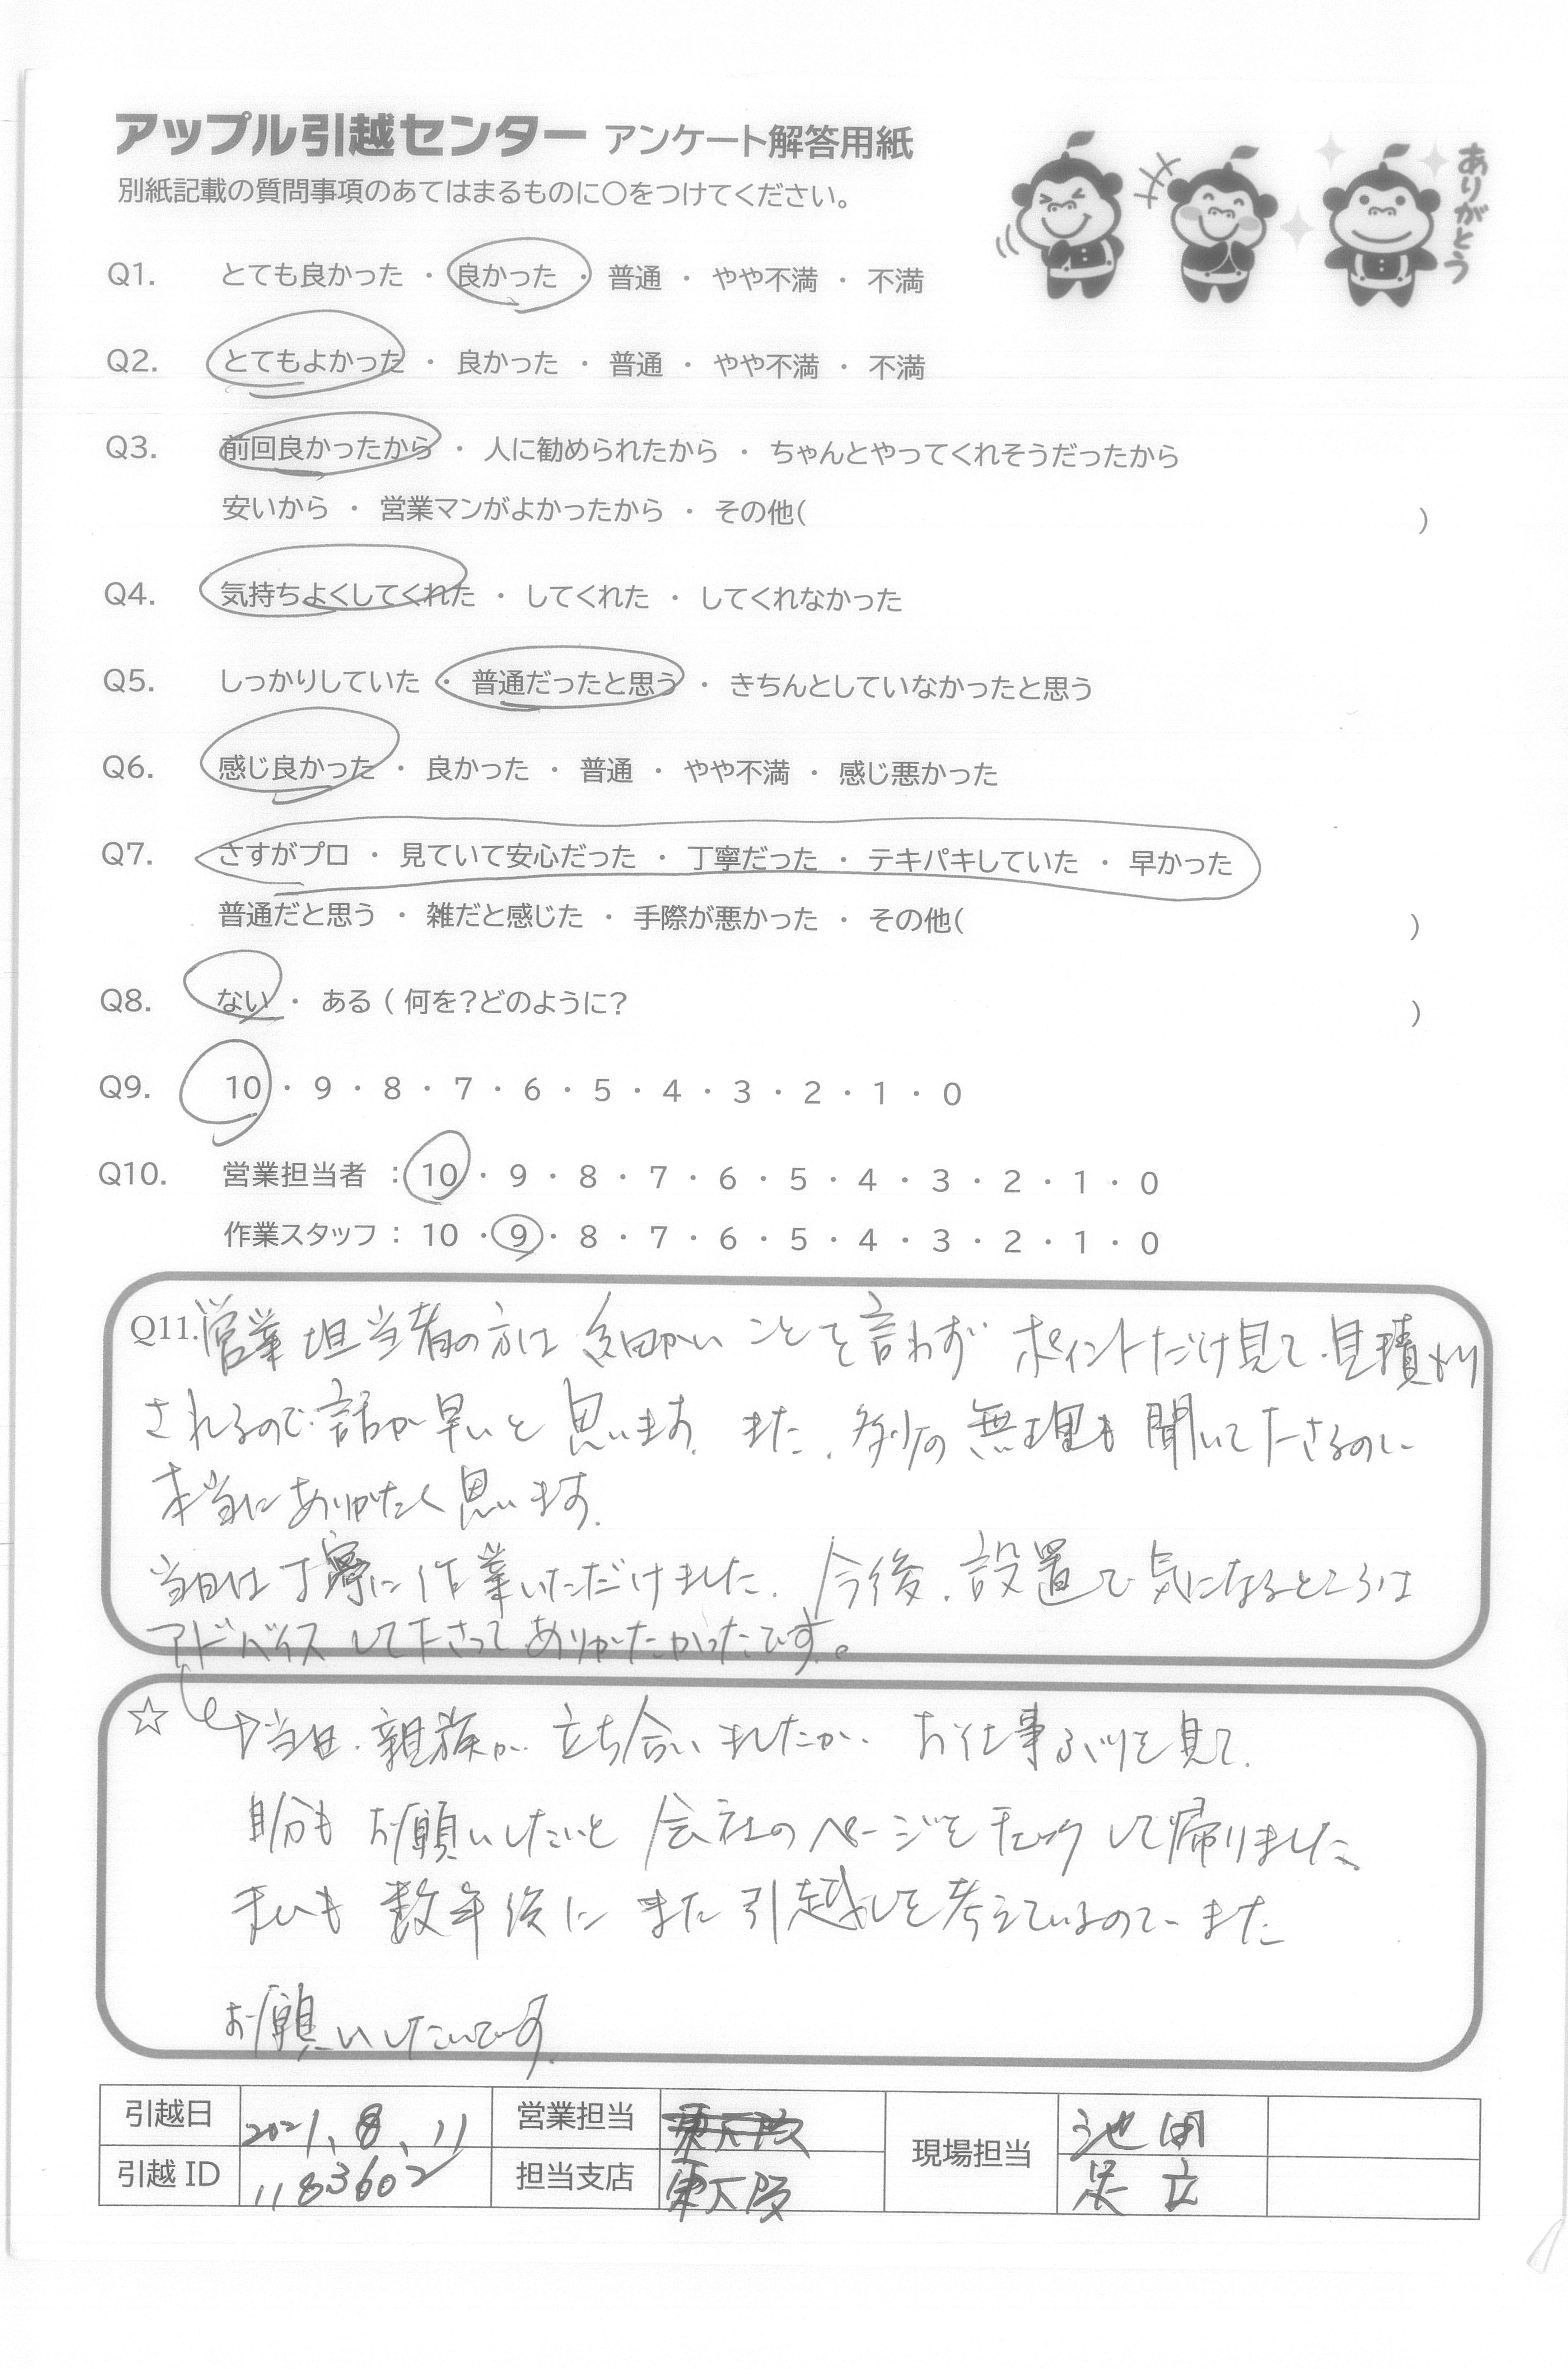 アップル引越センター アンケート解答用紙
別紙記載の質問事項のあてはまるものに○をつけてください。
ありがとう
Q1. とても良かった ・ 良かった ・ 普通 ・ やや不満 ・ 不満
Q2. とてもよかった ・ 良かった ・ 普通 ・ やや不満 ・ 不満
Q3. 前回良かったから ・ 人に勧められたから ・ ちゃんとやってくれそうだったから
安いから ・ 営業マンがよかったから ・ その他( )
Q4. 気持ちよくしてくれた ・ してくれた ・ してくれなかった
Q5. しっかりしていた ・ 普通だったと思う ・ きちんとしていなかったと思う
Q6. 感じ良かった ・ 良かった ・ 普通 ・ やや不満 ・ 感じ悪かった
Q7. さすがプロ ・ 見ていて安心だった ・ 丁寧だった ・ テキパキしていた ・ 早かった
普通だと思う ・ 雑だと感じた ・ 手際が悪かった ・ その他( )
Q8. ない ・ ある ( 何を?どのように? )
Q9. 10 ・ 9 ・ 8 ・ 7 ・ 6 ・ 5 ・ 4 ・ 3 ・ 2 ・ 1 ・ 0
Q10. 営業担当者 : 10 ・ 9 ・ 8 ・ 7 ・ 6 ・ 5 ・ 4 ・ 3 ・ 2 ・ 1 ・ 0
作業スタッフ : 10 ・ 9 ・ 8 ・ 7 ・ 6 ・ 5 ・ 4 ・ 3 ・ 2 ・ 1 ・ 0
Q11. 営業担当者の方は 細かい ことを言わず ポイントだけ見て、見積もり
されるので、話が早いと思います。また、多少の無理も聞いて下さるのに
本当にありがたく思います。
当日は丁寧に作業いただけました。今後、設置で気になるところは
アドバイスして下さって ありがたかったです。
☆ 当日、親族が立ち合いましたが、お仕事ぶりを見て、
自分もお願いしたいと会社のページをチェックして帰りました。
私も数年後にまた引越しを考えているので、また
お願いしたいです。
引越日 2021.8.11 営業担当 現場担当 池田
引越 ID 1183602 担当支店 東大阪 足立